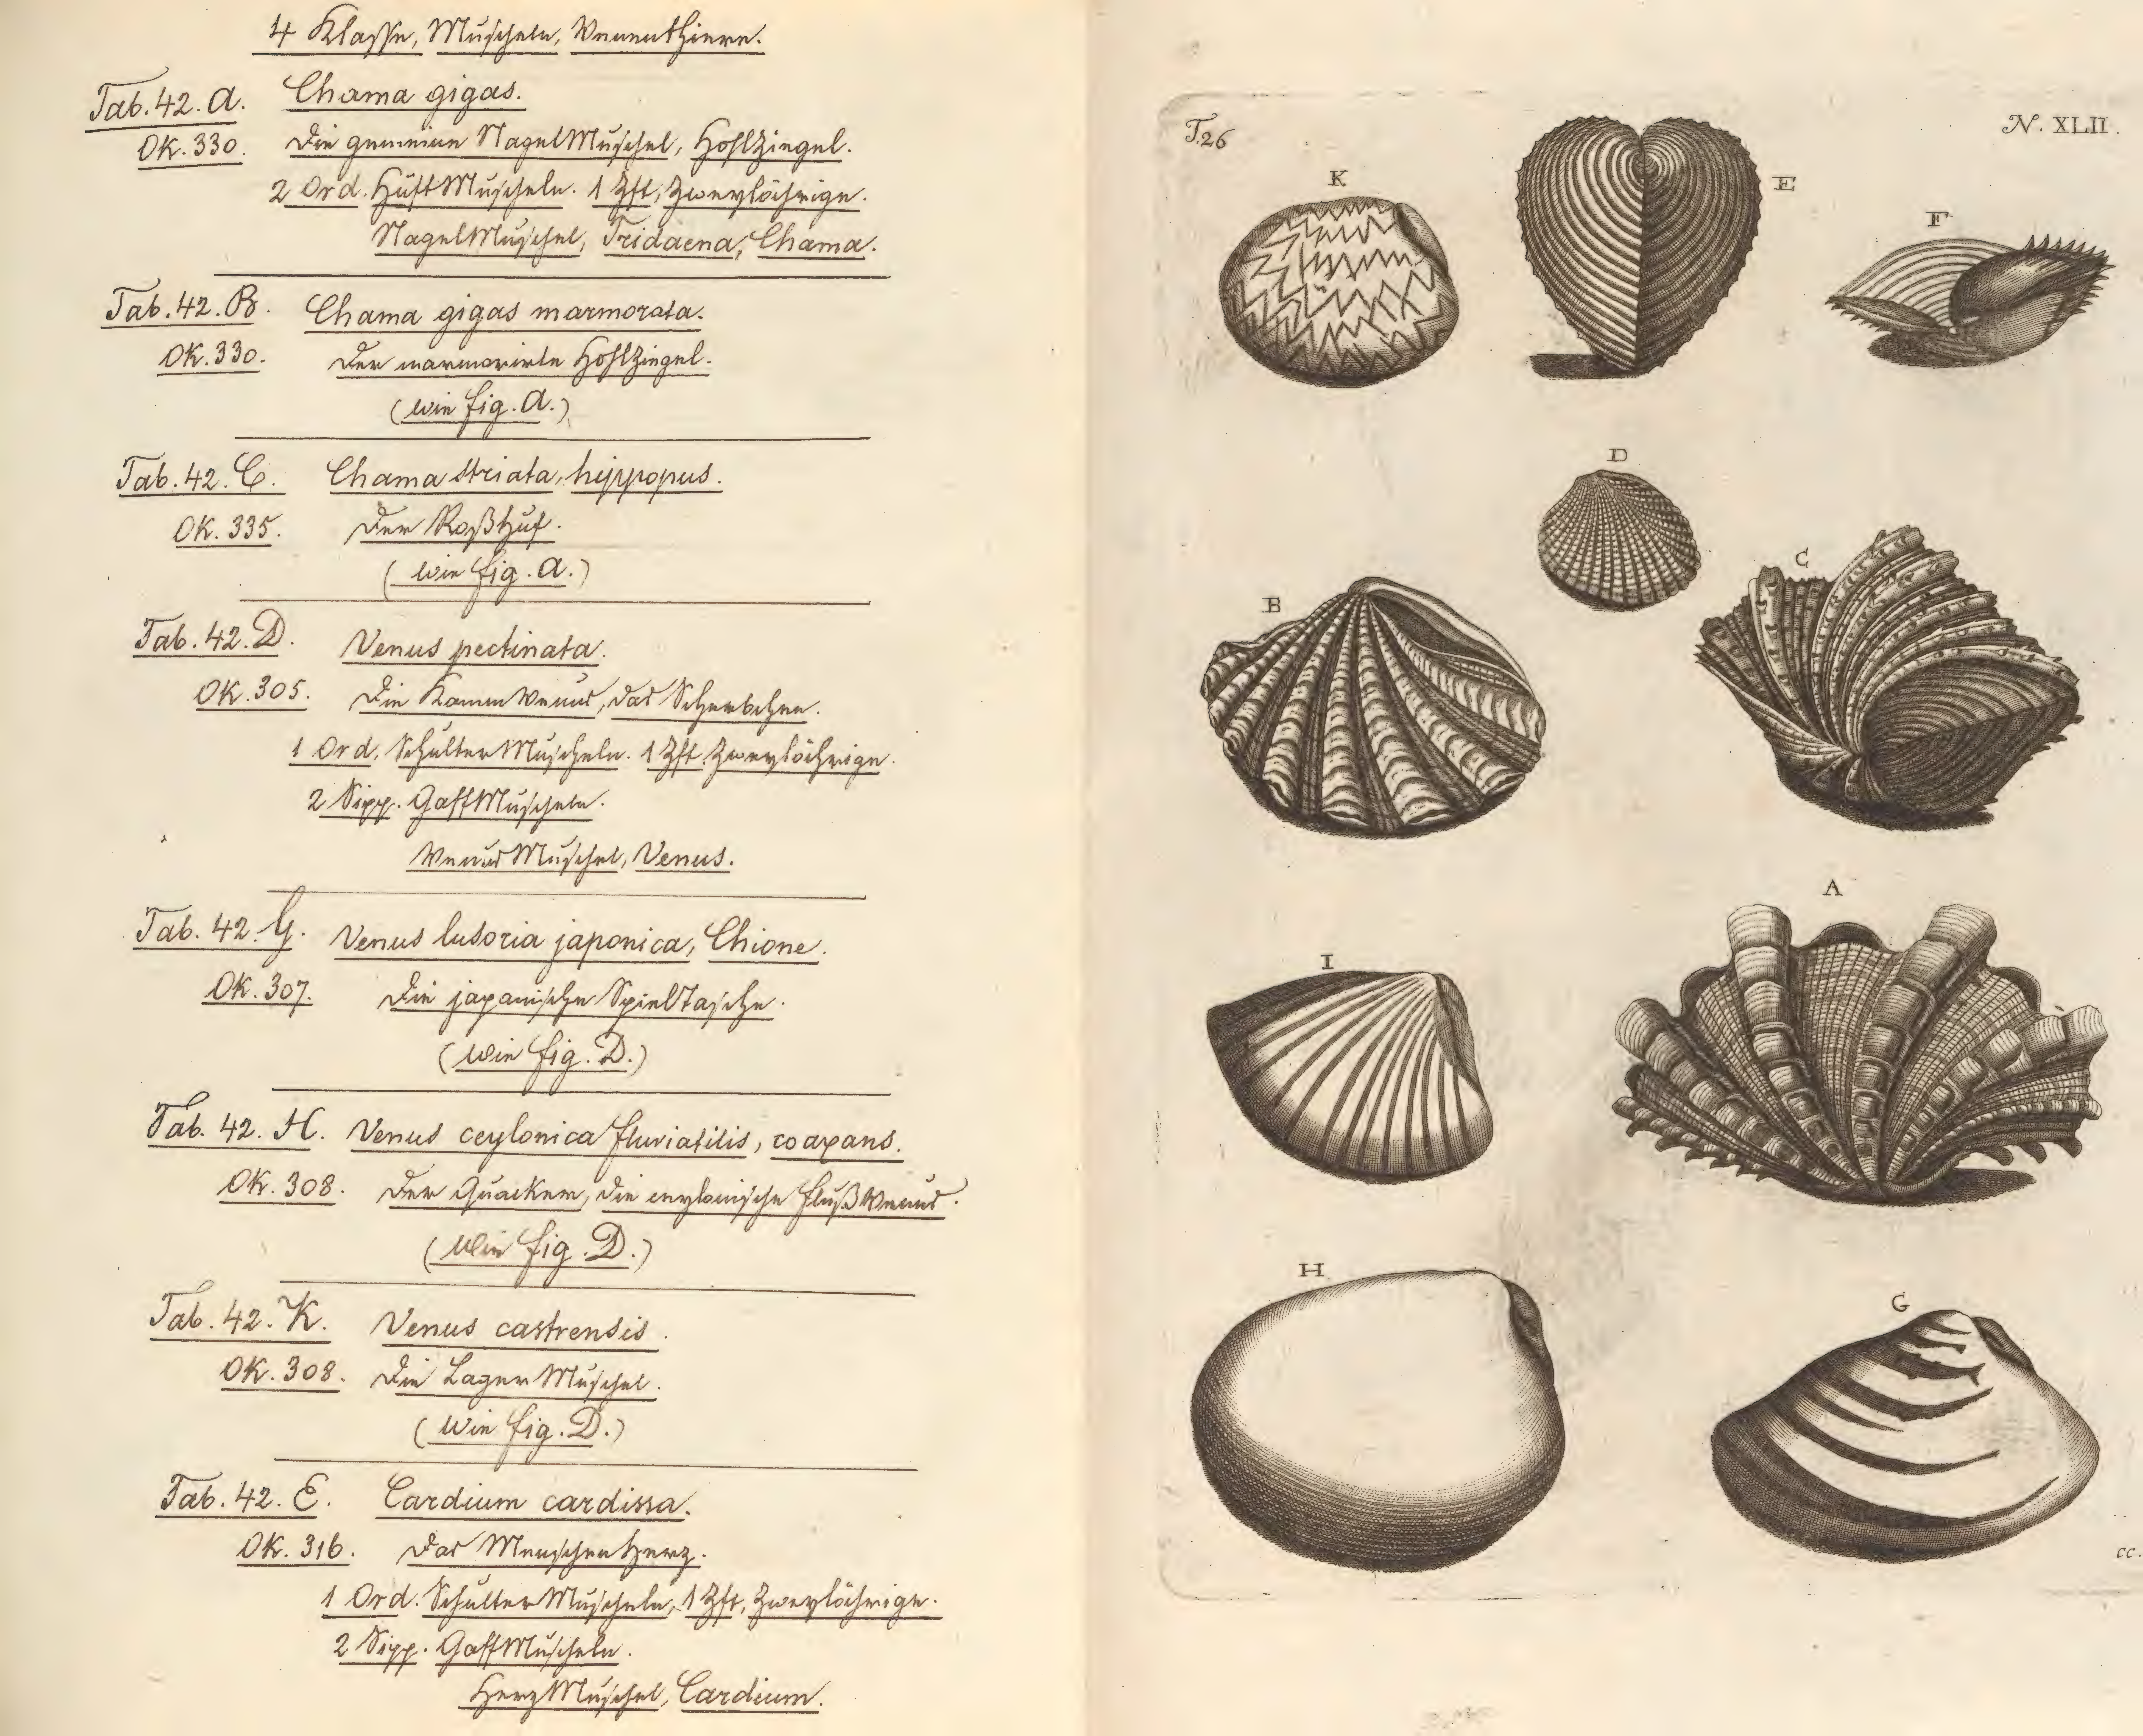 4 Klasse, Muscheln, Venenthiere.
Tab. 42. A. Chama gigas.
OK. 330. Die gemeine NagelMuschel, HohlZiegel.
2 Ord. HüftMuscheln. 1 Zft, Zweylöchrige.
NagelMuschel, Tridacna, Chama.
Tab. 42. B. Chama gigas marmorata.
OK. 330. Der marmorirte HohlZiegel.
(wie fig. A.)
Tab. 42. C. Chama striata, hippopus.
OK. 335. Der RoßHuf.
(wie fig. A.)
Tab. 42. D. Venus pectinata.
OK. 305. Die KammVenus, das
1 Ord. SchulterMuscheln. 1 Zft. Zweylöchrige.
2 Sipp. GaffMuscheln.
VenusMuschel, Venus.
Tab. 42. G. Venus lusoria japonica, Chione.
OK. 307. Die japanische SpielTasche.
(wie fig. D.)
Tab. 42. H. Venus ceylonica fluviatilis, coaxans.
OK. 308. Der Quacker, die ceylonische FlußVenus.
(Wie fig. D.)
Tab. 42. K. Venus castrensis.
OK. 308. Die LagerMuschel.
(Wie fig. D.)
Tab. 42. E. Cardium cardissa.
OK. 316. Das MenschenHerz.
1 Ord. SchulterMuscheln, 1 Zft, Zweylöchrige.
2 Sipp. GaffMuscheln.
HerzMuschel, Cardium.
T. 26
N. XLII.
K
E
F
D
B
C
A
I
H
G
cc.